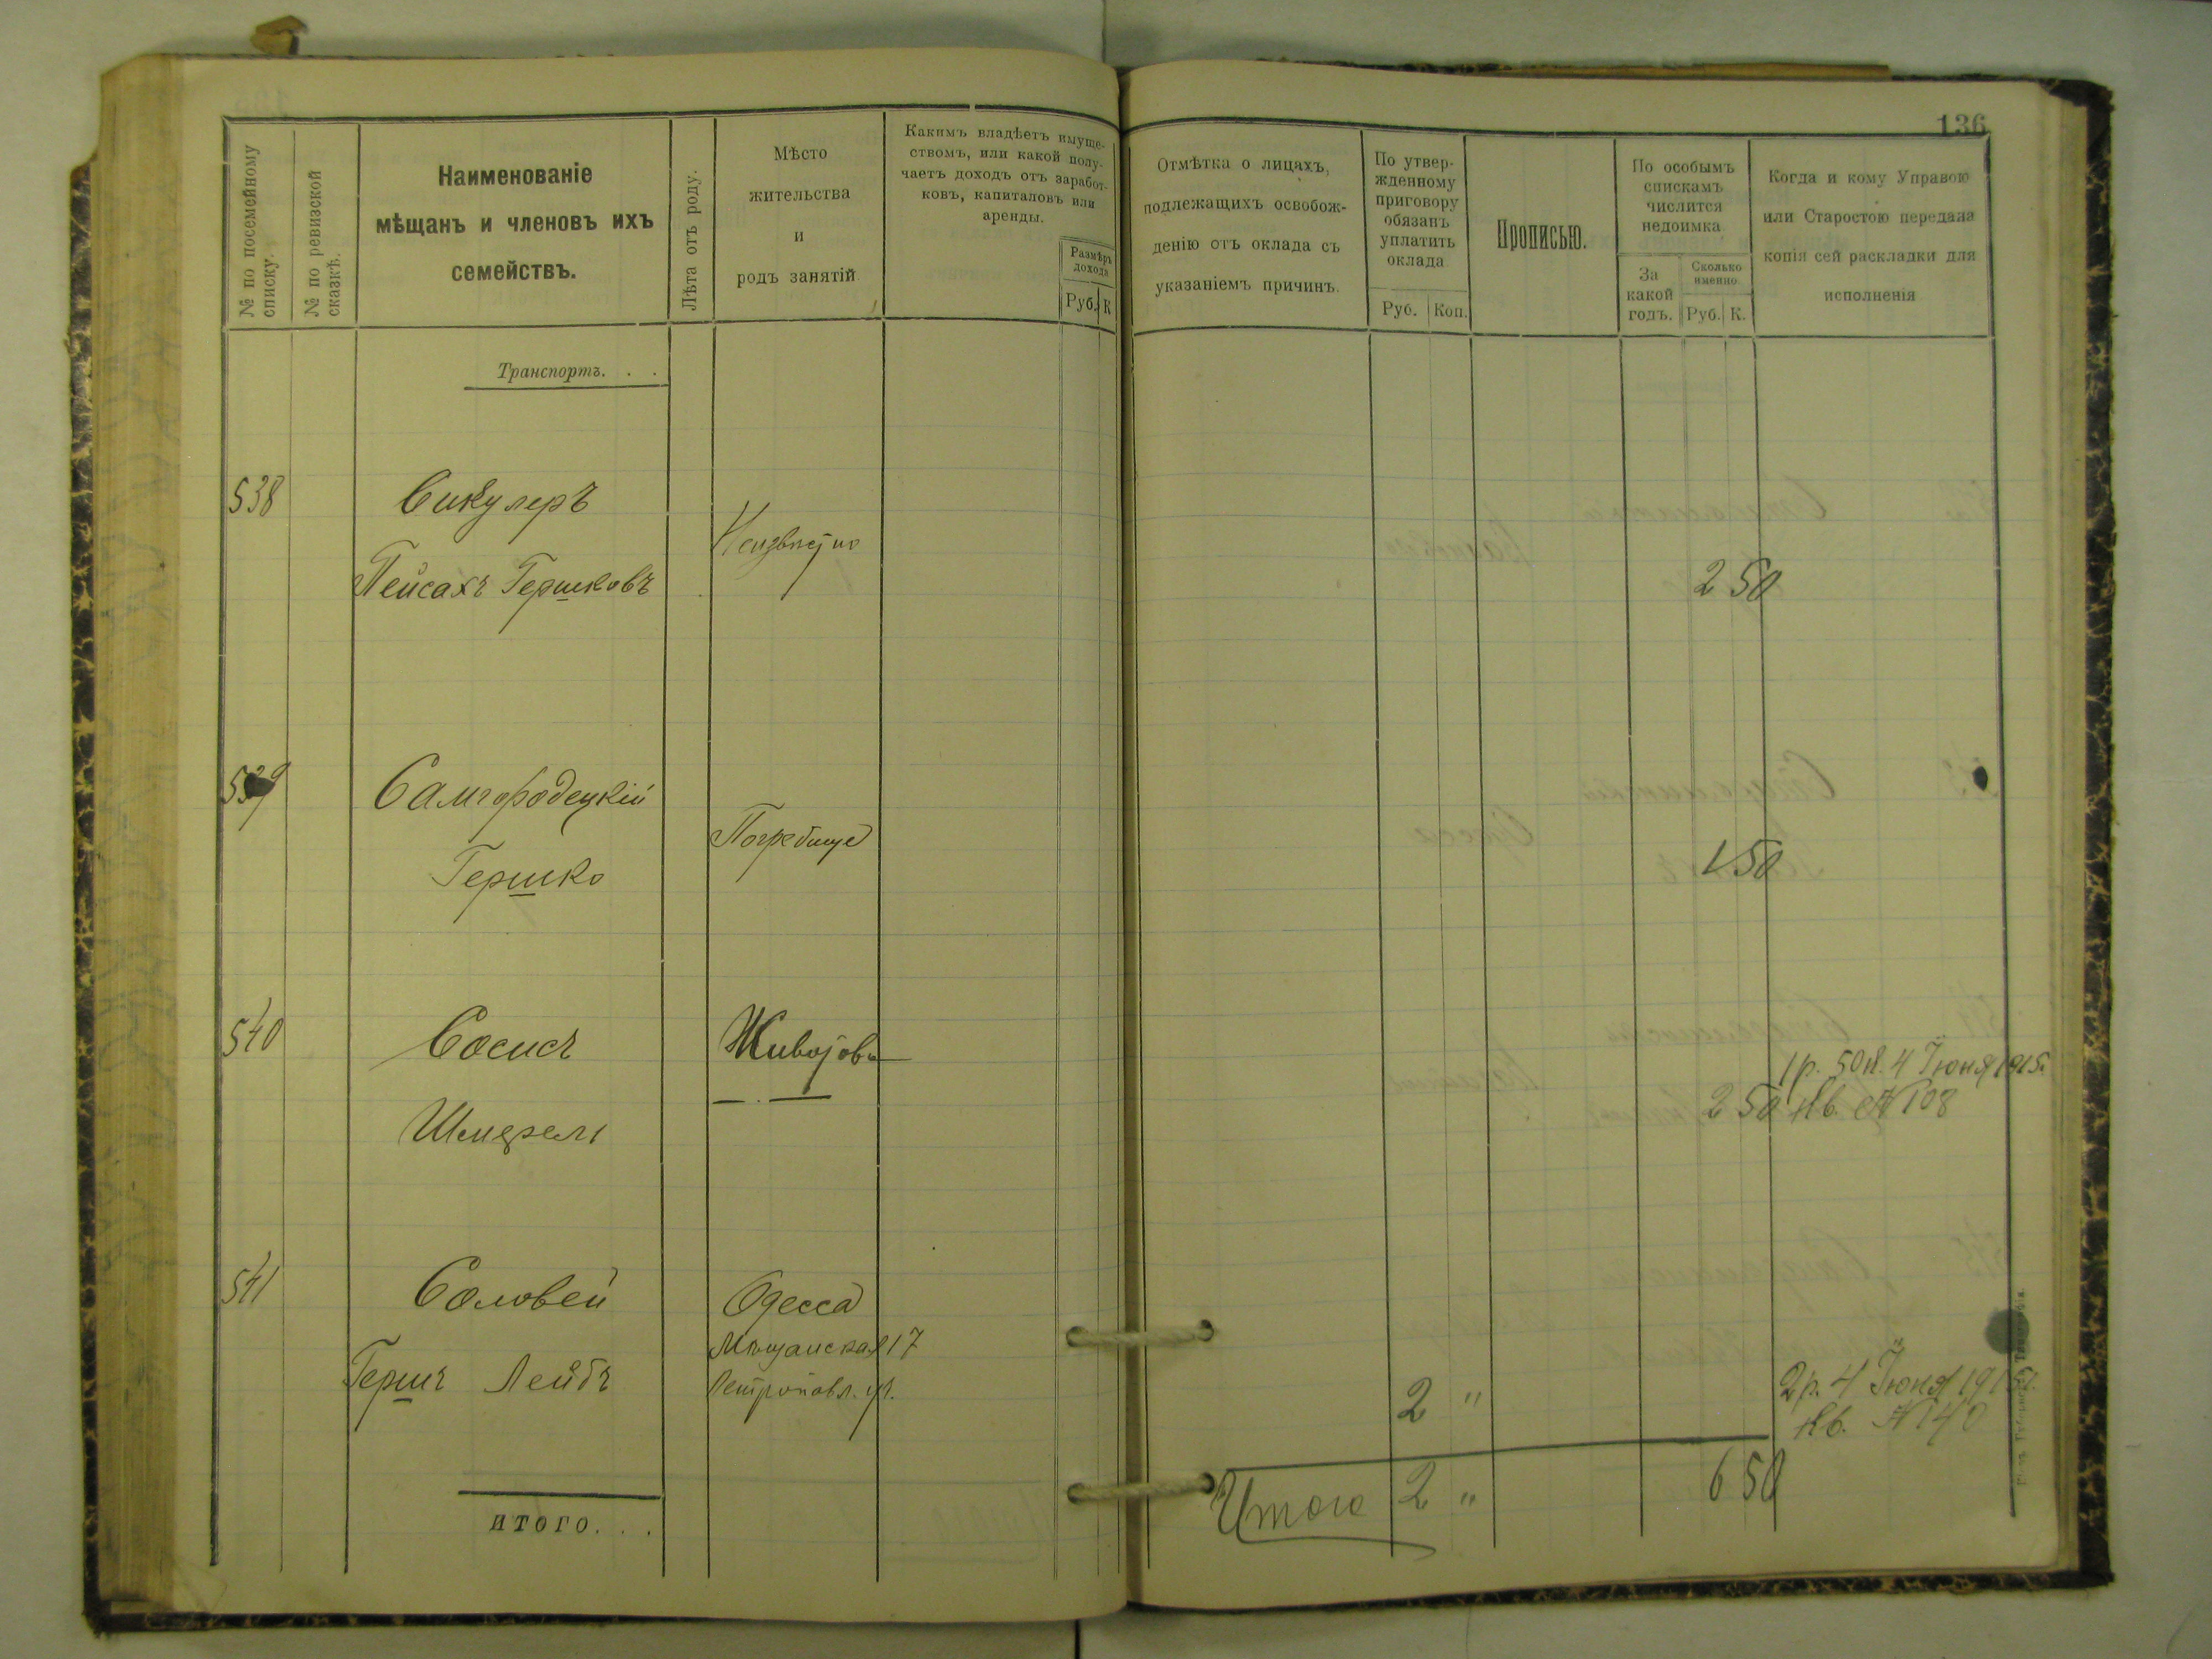 136
№ по посемейному списку.
№ по ревизской сказкѣ.
Наименованіе
мѣщанъ и членовъ ихъ
семействъ.
Лѣта отъ роду.
Мѣсто
жительства
и
родъ занятій
Какимъ владѣетъ имуще-
ствомъ, или какой полу-
чаетъ доходъ отъ заработ-
ковъ, капиталовъ или
аренды.
Размѣръ
дохода
Руб. К
Отмѣтка о лицахъ,
подлежащихъ освобож-
денію отъ оклада съ
указаніемъ причинъ.
По утвер-
жденному
приговору
обязанъ
уплатить
оклада
Руб. Коп.
Прописью.
По особымъ
спискамъ
числится
недоимка
За
какой
годъ.
Сколько
именно
Руб. К.
Когда и кому Управою
или Старостою передана
копія сей раскладки для
исполненія
Транспортъ. . .
538
Сикулеръ
Пейсахъ Гершковъ
Неизвѣстно
2 50
539
Самгородецкій
Гершко
Погребище
1 50
540
Сосисъ
Шмерель
Животовъ
1 р. 50 к. 4 Іюня 1915
2 50 кв. № 108
541
Соловей
Гершъ Лейбъ
Одесса
Мѣщанская 17
2 "
2 р. 4 Іюня 191
кв. № 140
Итого 2 " 6 50
ИТОГО. . .